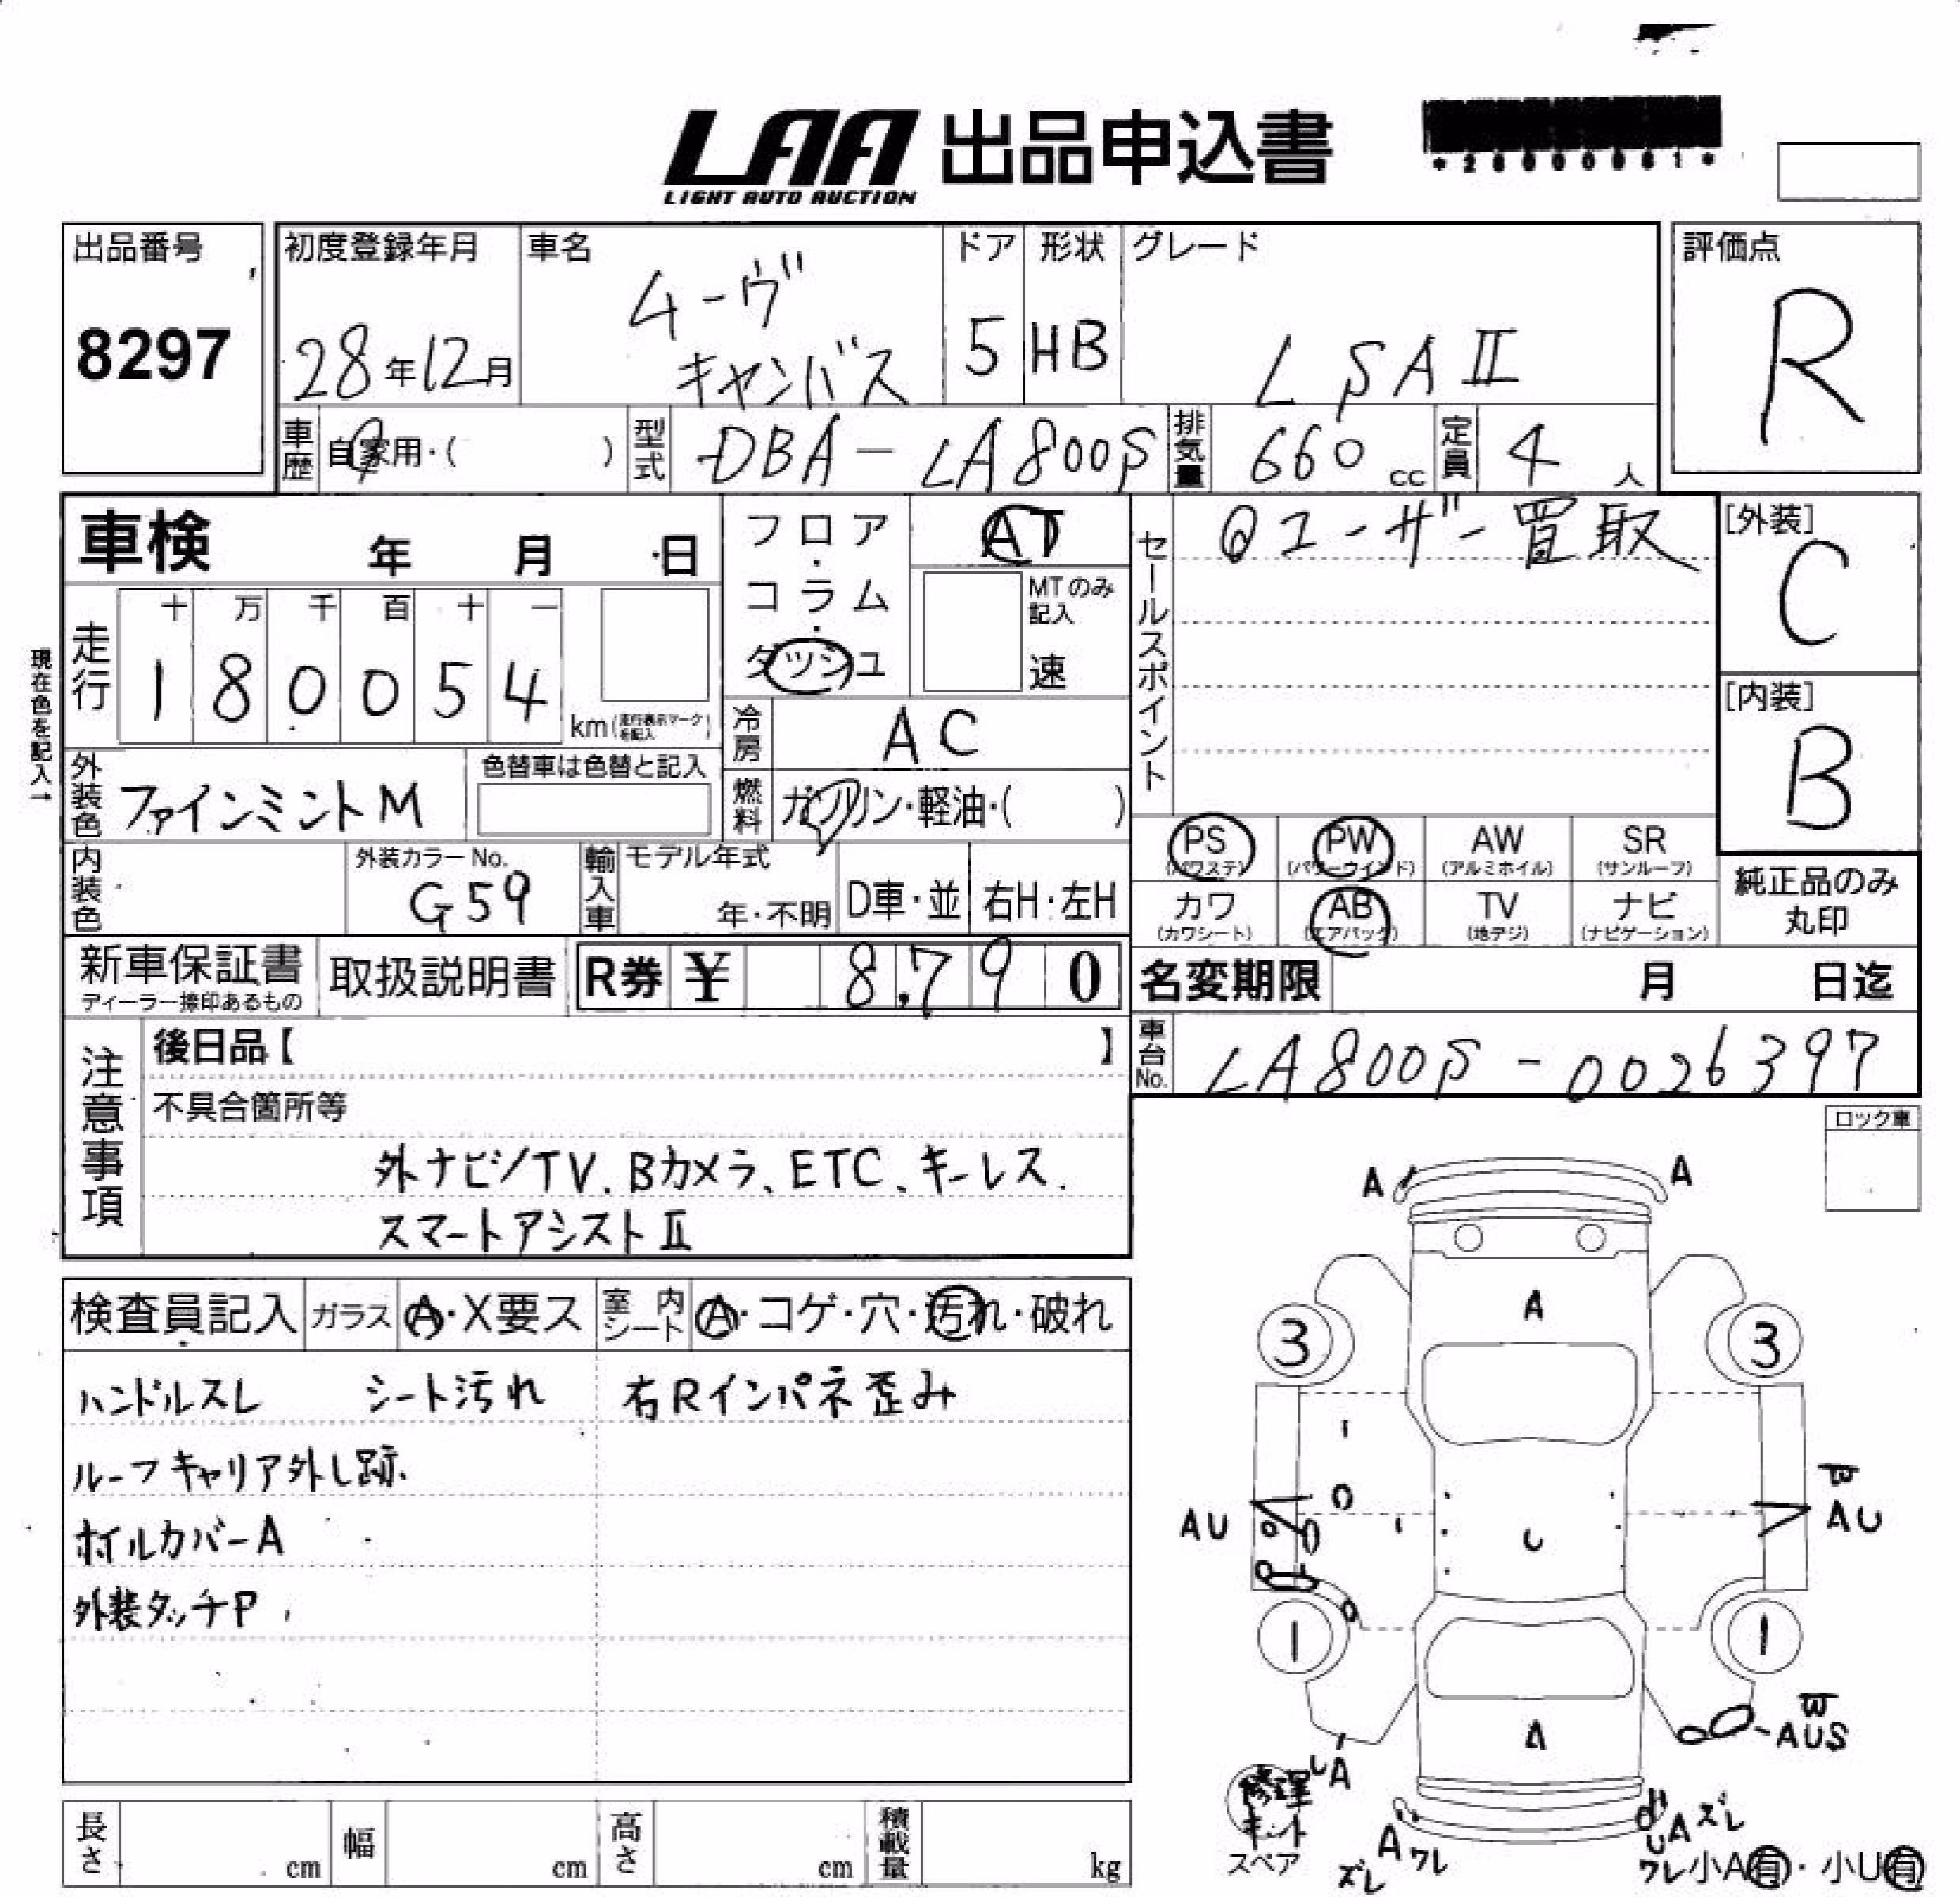 LAA 出品申込書
LIGHT AUTO AUCTION
出品番号
8297
初度登録年月
28年12月
車名
ムーヴ
キャンバス
ドア
5
形状
HB
グレード
L SAⅡ
評価点
R
車歴
自家用・( )
型式
DBA-LA800S
排気量
660 cc
定員
4 人
車検 年 月 日
走行
十 万 千 百 十 一
1 8 0 0 5 4
km(走行表示マークを記入)
現在色を記入→
フロア・コラム・ダッシュ
AT
MTのみ記入
速
冷房
AC
燃料
ガソリン・軽油・( )
外装色
ファインミントM
色替車は色替と記入
内装色
外装カラーNo.
G59
輸入車
モデル年式
年・不明
D車・並
右H・左H
セールスポイント
@ユーザー買取
[外装]
C
[内装]
B
PS
(パワステ)
PW
(パワーウインド)
AW
(アルミホイル)
SR
(サンルーフ)
カワ
(カワシート)
AB
(エアバック)
TV
(地デジ)
ナビ
(ナビゲーション)
純正品のみ
丸印
新車保証書
ディーラー捺印あるもの
取扱説明書
R券 ¥ 8,790
名変期限 月 日迄
車台No.
LA800S-0026397
注意事項
後日品【 】
不具合箇所等
外ナビ/TV、Bカメラ、ETC、キーレス.
スマートアシストⅡ
ロック車
検査員記入
ガラス
A・X要ス
室内シート
A・コゲ・穴・汚れ・破れ
ハンドルスレ シート汚れ 右Rインパネ歪み
ルーフキャリア外し跡.
ホイルカバーA
外装タッチP
A A
A
3 3
AU
AU
1 1
AUS
A
UA
修理
キット
スペア
A ワレ
ズレ
UA ズレ
ワレ
小A有・小U有
長さ cm
幅 cm
高さ cm
積載量 kg